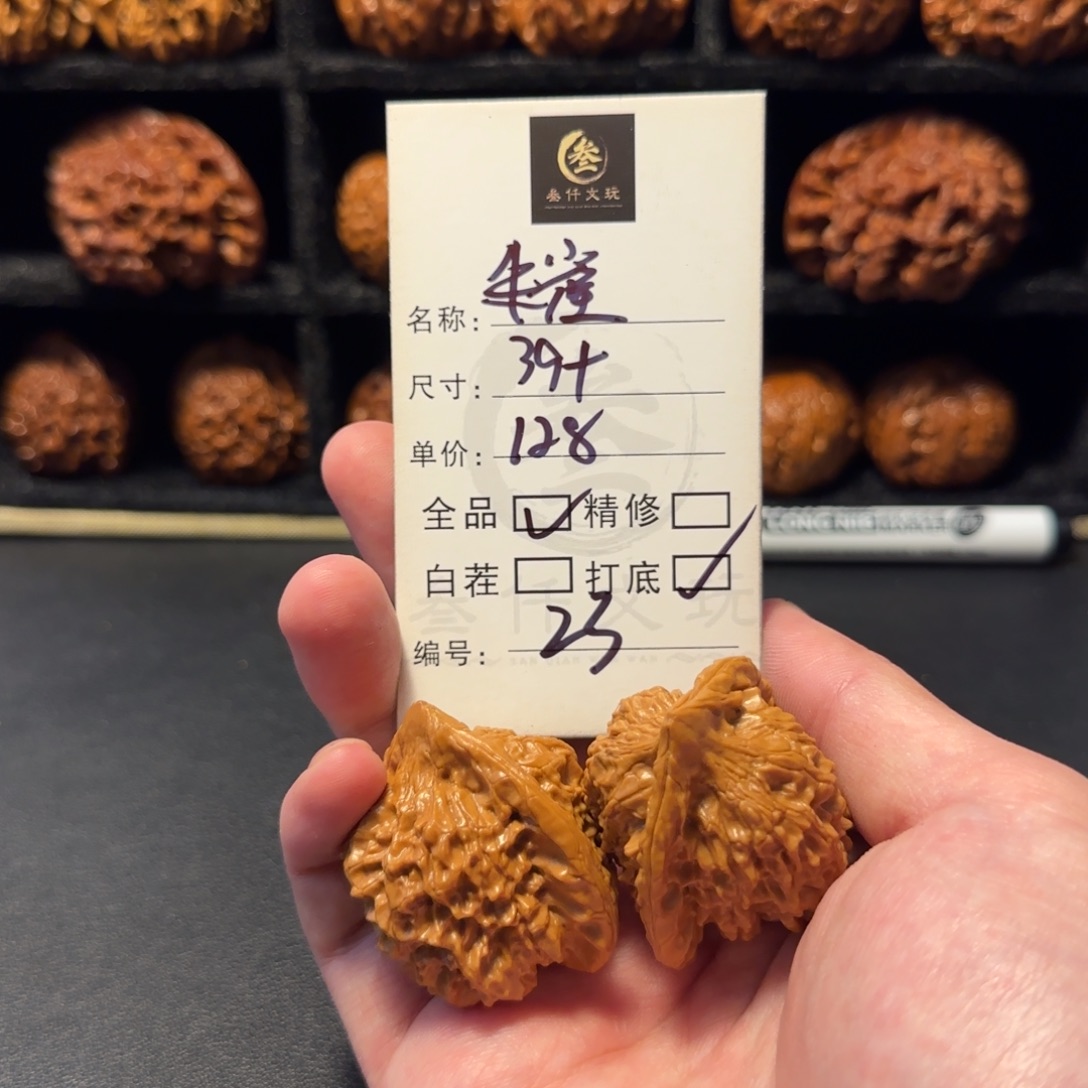 叁
叁仟文玩
名称：
尺寸：39+
单价：128
全品 ✓ 精修
白茬 打底 ✓
编号：23
叁仟文玩